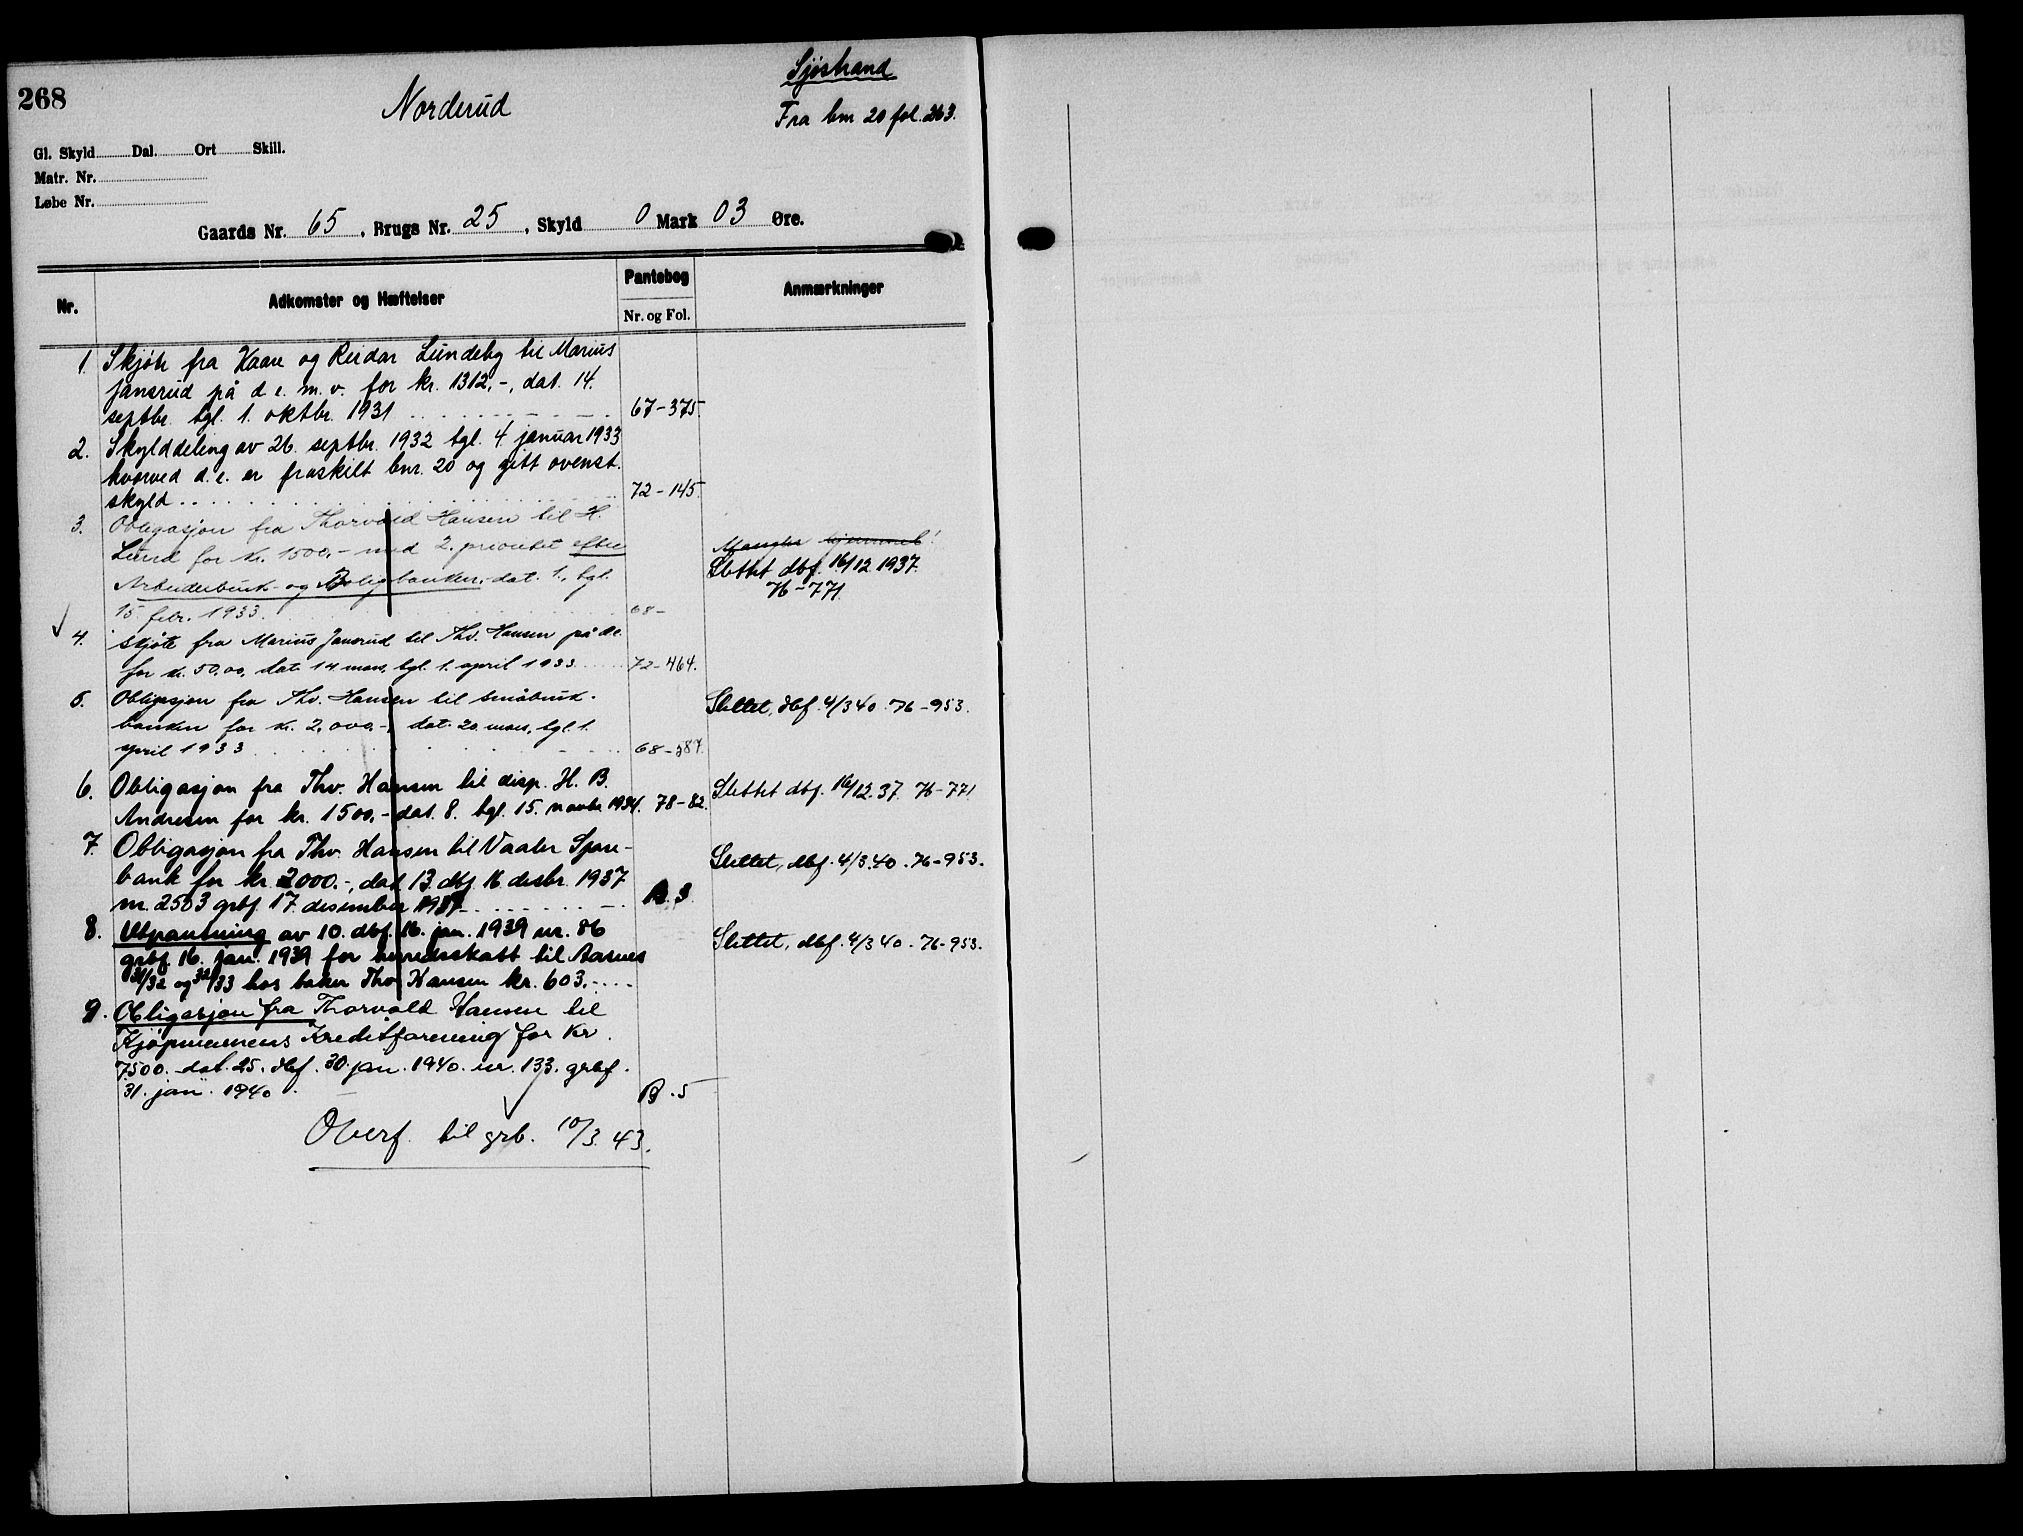 268
Norderud
Sjöstrand
Fra bnr 20 fol. 263.
Gl. Skyld Dal. Ort Skill.
Matr. Nr.
Løbe Nr.
Gaards Nr. 65, Brugs Nr. 25, Skyld 0 Mark 03 Øre.
Nr. Adkomster og Hæftelser Pantebog Anmærkninger
Nr. og Fol.
1. Skjöte fra Kaare og Reidar Lundeby til Marius
Jansrud på d. e. m. v. for kr. 1312,-, dat. 14.
septbr. tgl. 1. oktbr. 1931 67-375.
2. Skylddeling av 26. septbr. 1932 tgl. 4. januar 1933
hvorved d. e. er fraskilt bnr. 20 og gitt ovenst.
skyld 72-145.
3. Obligasjon fra Thorvald Hansen til H.
Lund for kr. 1500,- med 2. prioritet efter
Mangler hjemmel!
Arbeiderbruk- og Boligbanken, dat. 1., tgl.
Slettet dbf. 16/12 1937.
76-771.
15. febr. 1933. 68-
4. Skjöte fra Marius Jansrud til Thv. Hansen på d e.
for kr. 50,00, dat. 14 mars, tgl. 1. april 1933 72-464.
5. Obligasjon fra Thv. Hansen til Småbruk-
Slettet, dbf. 4/3 40. 76-953.
banken for kr. 2,000,-, dat. 20. mars, tgl. 1.
april 1933 68-587.
6. Obligasjon fra Thv. Hansen til disp. H. B.
Slettet dbf. 16/12.37. 76-771
Andresen for kr. 1500,- dat. 8. tgl. 15. novbr 1934. 78-82.
7. Obligasjon fra Thv. Hansen til Vaaler Spare-
Slettet, dbf. 4/3.40. 76-953.
bank for kr. 2000.-, dat. 13. dbf. 16. desbr. 1937
nr. 2503 grbf. 17. desember 1937 B. 3.
8. Utpantning av 10. dbf. 16. jan. 1939 nr. 86
Slettet, dbf. 4/3 40. 76-953.
grbf. 16. jan. 1939 for herredsskatt til Aasnes
31/32 og 32/33 hos baker Thv. Hansen kr. 603.-
9. Obligasjon fra Thorvald Hansen til
Kjöpmennenes Kreditforening for kr.
7500.- dat. 25. dbf. 30. jan. 1940. nr. 133. grbf.
31. jan. 1940. B. 5
Overf. til grb. 10/3. 43.